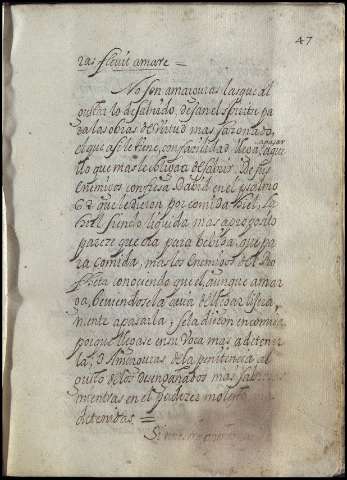 47
ras flevit amare =
No son amarguras las que al
gusto lo desabrido, dejan el spiritu pa
ra las obras de virtud mas sazonado,
el que assi le tiene, con facilidad llega
a pasar
lo que mas le obligan
Enemigos confiesa David en el psalmo
62 que le dieron por comida hiel, la
hiel siendo liquida mas aproposito
parece que era para bebida, que pa
ra comida, mas los Enemigos del Pro
pheta conoziendo que el, aunque amar
ga, beviendosela avia de llegar ligera
mente a pasarla; se la dieron en comida
porque llegase en su voca mas a detener
la, Amarguras de la penitencia al
gusto de los desengañados mas
mientras en el padezer
detenidas =